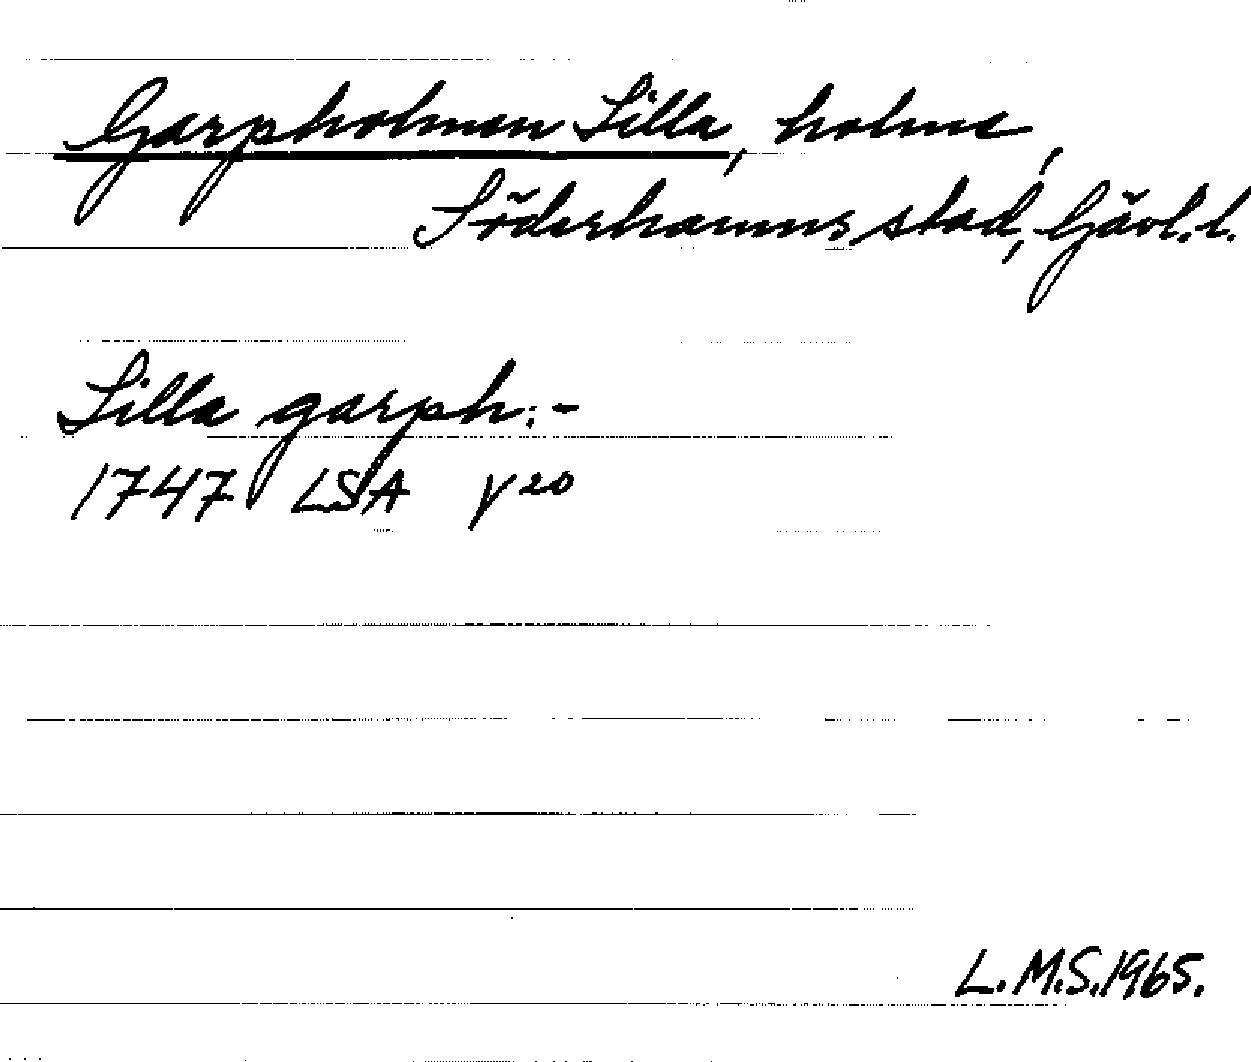 Garpholmen Lilla, holme,
Söderhamns stad, Gävl.l.
Lilla garph:-
1747 LSA Y²⁰
L.M.S. 1965.